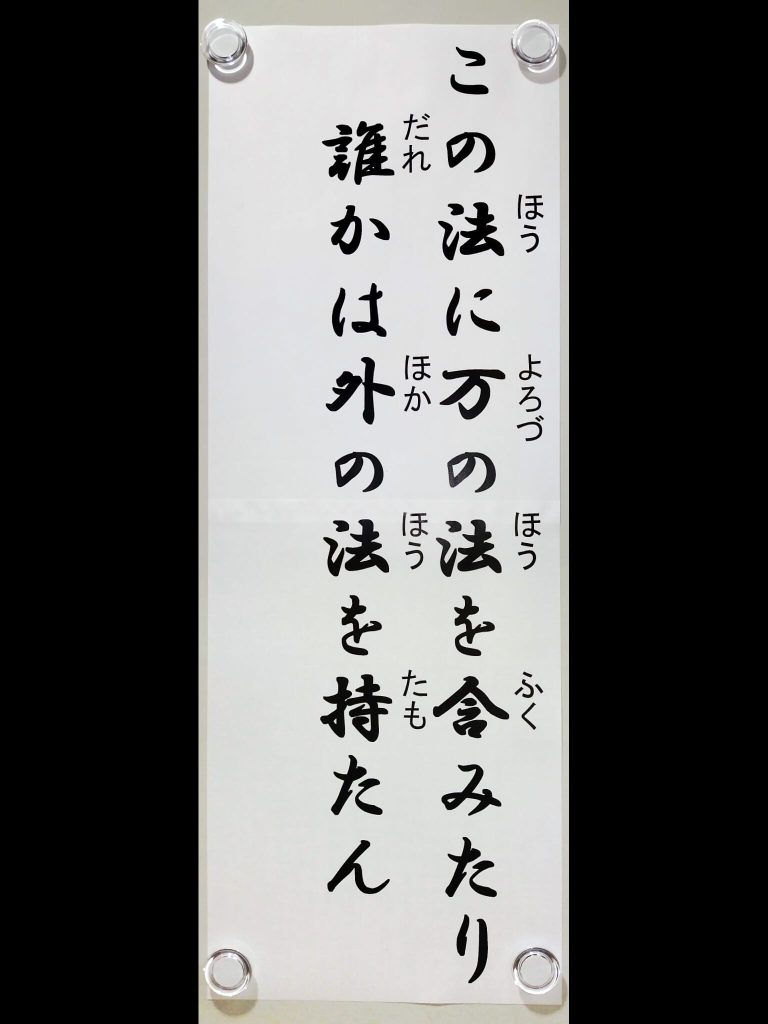 この法に万の法を含みたり
ほう よろづ ほう ふく
誰かは外の法を持たん
だれ ほか ほう たも